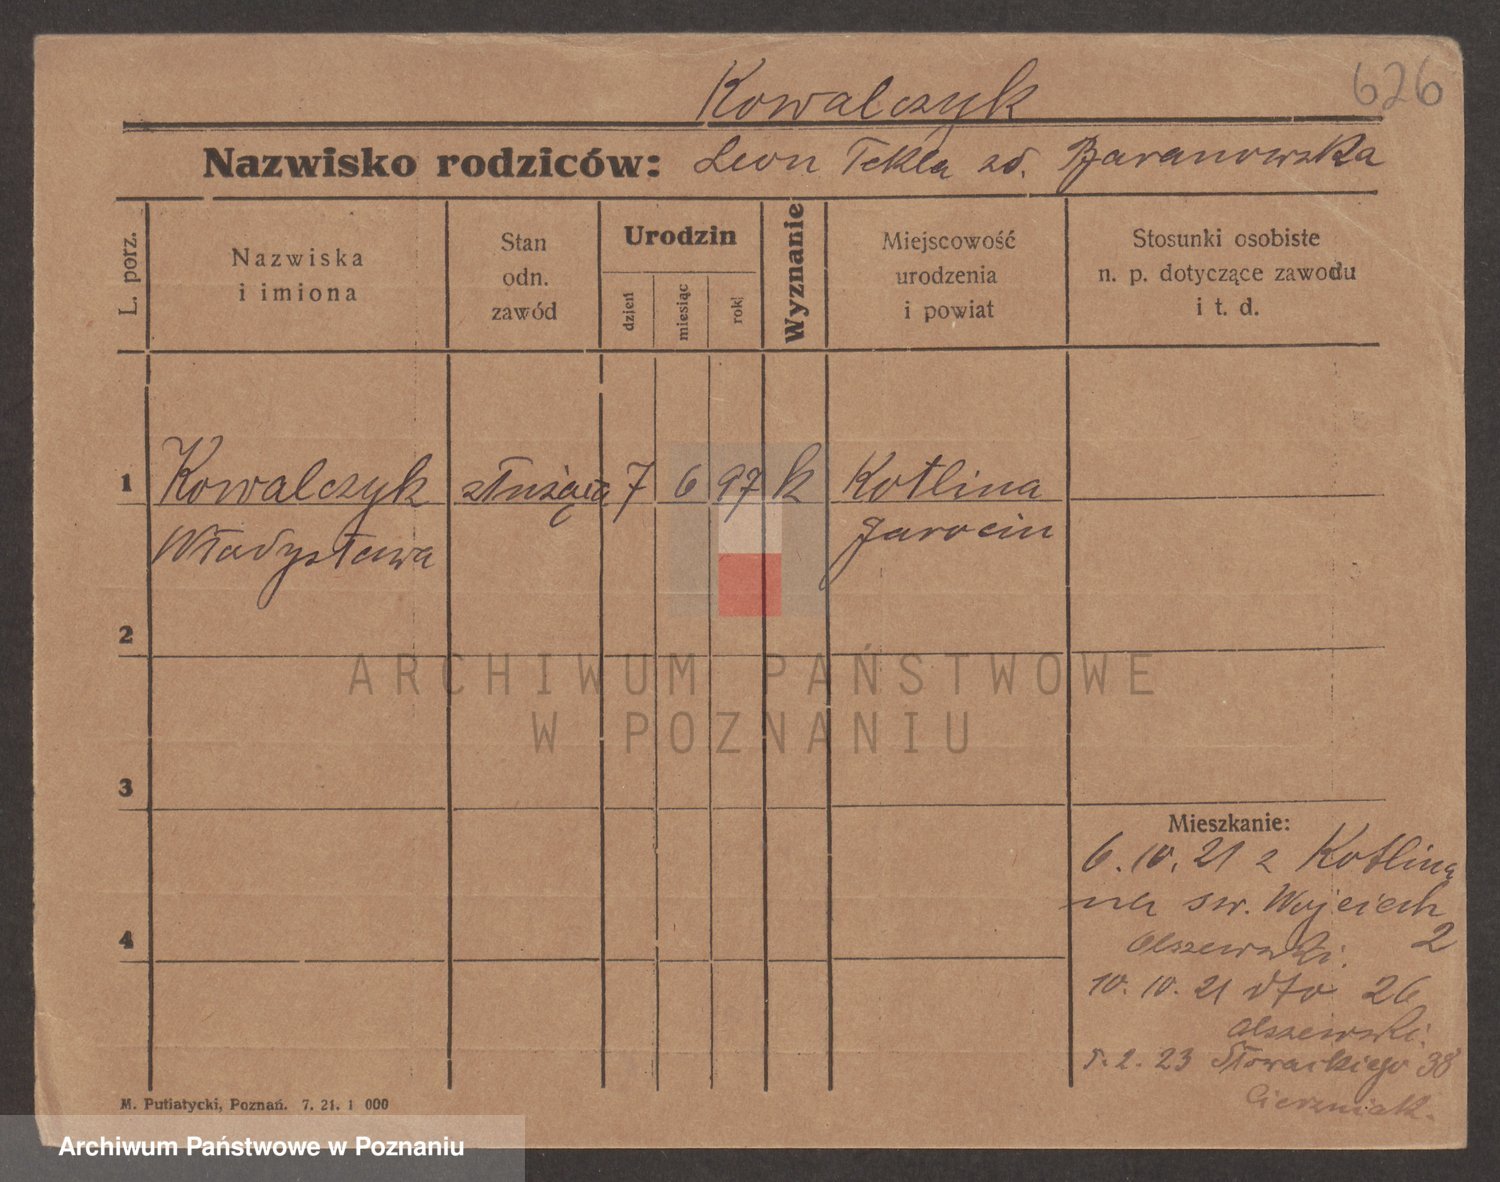 626
Kowalczyk
Nazwisko rodziców: Leon Tekla zd. Baranowska
L. porz.
Nazwiska
i imiona
Stan
odn.
zawód
Urodzin
dzień
miesiąc
rok
Wyznanie
Miejscowość
urodzenia
i powiat
Stosunki osobiste
n. p. dotyczące zawodu
i t. d.
1 Kowalczyk służąca 7 6 97 k Kotlina
Władysława Jarocin
2
ARCHIWUM PAŃSTWOWE
W POZNANIU
3
Mieszkanie:
6.10.21 z Kotlina
na św. Wojciech
2
Olszewski.
4
10.10.21 dto 26
Olszewski.
5.2.23 Słowackiego 38
Cierzniak.
M. Putiatycki, Poznań. 7. 21. 1 000
Archiwum Państwowe w Poznaniu